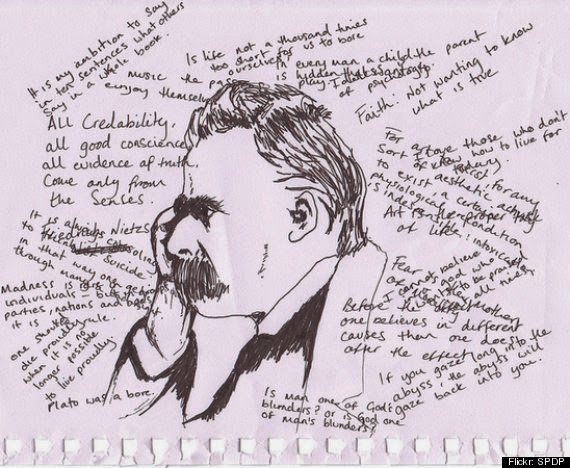 It is my ambition to say
in ten sentences what others
say in a whole book.
Is life not a thousand times
too short for us to bore
ourselves
In every man a child
is hidden that
play.
the parent
of psychology
music the
enjoy themselves
Faith: not wanting to know
what is true
All Credability,
all good conscience,
all evidence of truth
Come only from
the Senses.
For art to exist, for any
sort of aesthetic activity
to exist: a certain
physiological precondition
is indispensable:
intoxication
I love those who don't
know how to live for
today.
Art is the proper
task of life.
It is always
Nietzs
suicide
in that way one
through many
Madness is rare in
individuals – but
parties, nations and ages
it is
rule.
one should
die proudly
when it is no
longer possible
to live proudly
Plato was a bore.
Fear is the mother
of morality
I cannot believe
in a god who
wants to be praised
all the time
Before the effect
one believes in different
causes than one does
after the effect
If you gaze long into the
abyss, the abyss will
gaze back into you.
Is man one of God's
blunders? or is God one
of man's blunders?
Flickr: SPDP